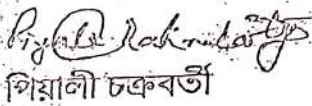 Piyali Chakraborty
পিয়ালী চক্রবর্তী